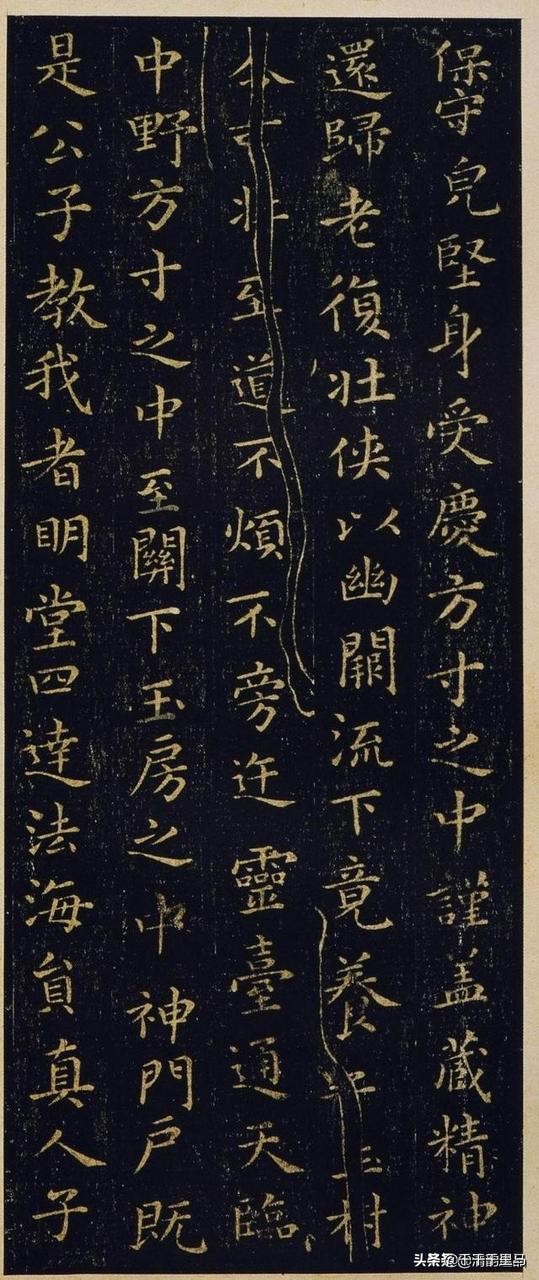 保守皃堅身受慶方寸之中謹盖藏精神
還歸老復壮侠以幽闕流下竟養
可壮至道不煩不旁迕靈臺通天臨
中野方寸之中至關下玉房之中神門戶既
是公子教我者明堂四達法海貟真人子
头条